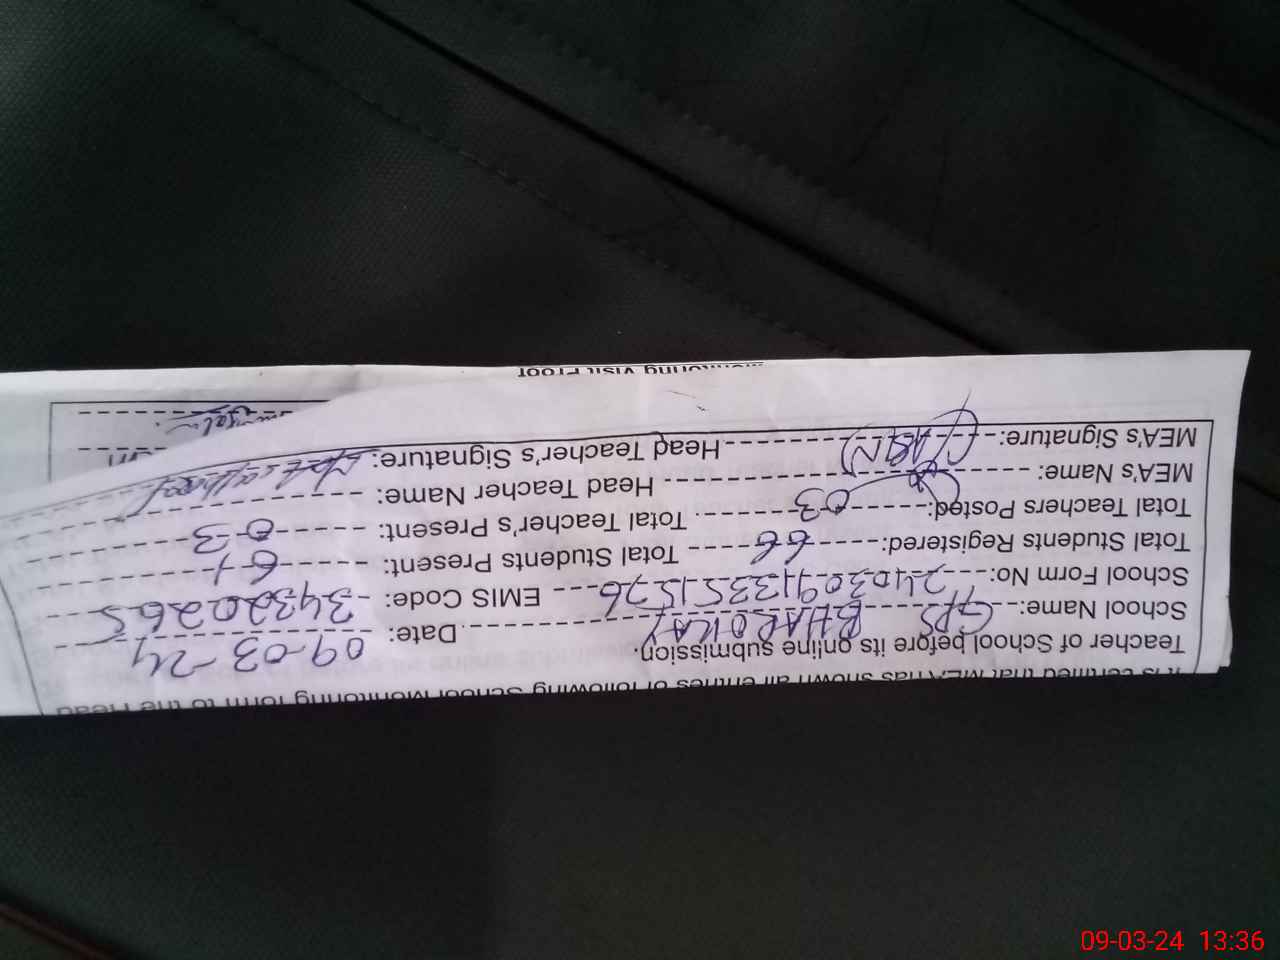 It is certified that MEA has shown all entries of following School Monitoring form to the Head
Teacher of School before its online submission.
School Name: GPS BHAROKAY Date: 09-03-24
School Form No: 24030911335 1526 EMIS Code: 34320265
Total Students Registered: 66 Total Students Present: 61
Total Teachers Posted: 03 Total Teacher's Present: 03
MEA's Name: Head Teacher Name:
MEA's Signature: Head Teacher's Signature:
Monitoring Visit Proof
09-03-24 13:36